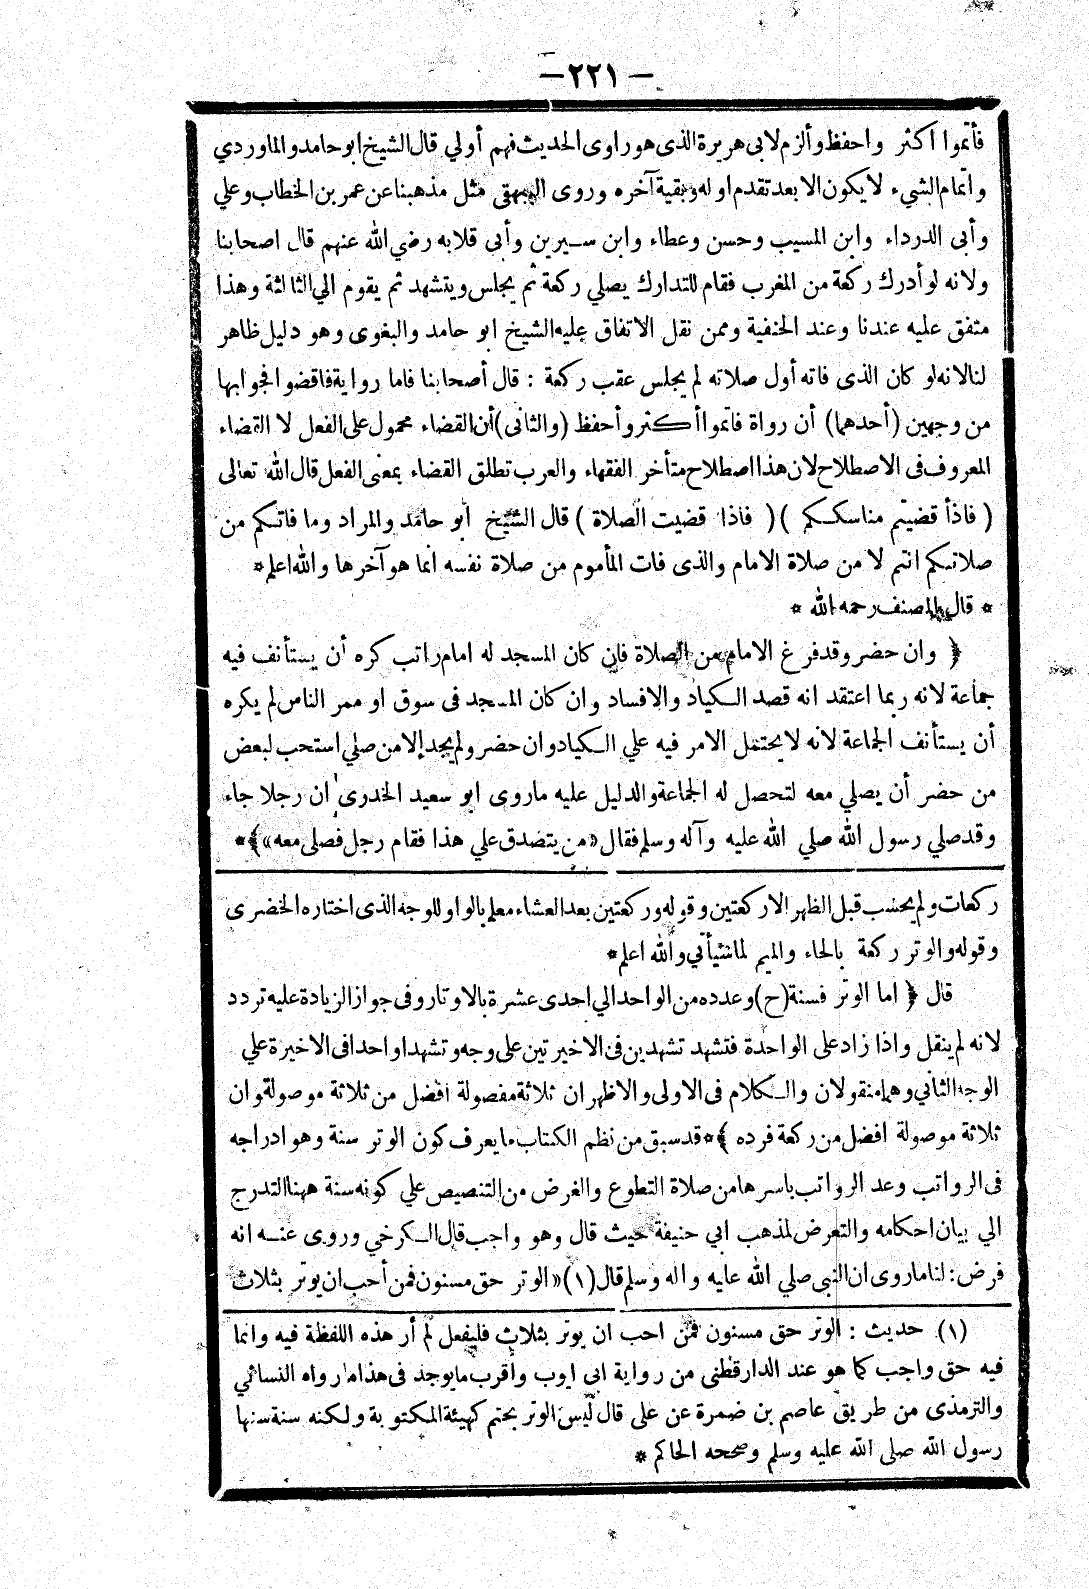 — ٢٢١ —
فأتموا أكثر واحفظ وألزم لابى هريرة الذى هو راوى الحديث فهم أولي قال الشيخ ابو حامد والماوردي
واتمام الشيء لا يكون الا بعد تقدم اوله وبقية آخره وروى البيهقى مثل مذهبنا عن عمر بن الخطاب وعلي
وأبى الدرداء وابن المسيب وحسن وعطاء وابن سيرين وأبى قلابه رضي الله عنهم قال اصحابنا
ولانه لو أدرك ركعة من المغرب فقام للتدارك يصلي ركعة ثم يجلس ويتشهد ثم يقوم الي الثالثة وهذا
متفق عليه عندنا وعند الحنفية وممن نقل الاتفاق عليه الشيخ ابو حامد والبغوى وهو دليل ظاهر
لنا لانه لو كان الذى فاته أول صلاته لم يجلس عقب ركعة : قال أصحابنا فاما رواية فاقضوا فجوابها
من وجهين (أحدهما) أن رواة فاتموا أكثر وأحفظ (والثانى) أن القضاء محمول على الفعل لا القضاء
المعروف فى الاصطلاح لان هذا اصطلاح متأخر الفقهاء والعرب تطلق القضاء بمعنى الفعل قال الله تعالى
( فاذأ قضيتم مناسككم ) ( فاذا قضيت الصلاة ) قال الشيخ أبو حامد والمراد وما فاتكم من
صلاتكم انتم لا من صلاة الامام والذى فات المأموم من صلاة نفسه انما هو آخرها والله اعلم *
* قال المصنف رحمه الله *
﴿ وان حضر وقد فرغ الامام من الصلاة فان كان المسجد له امام راتب كره أن يستأنف فيه
جماعة لانه ربما اعتقد انه قصد الكياد والافساد وان كان المسجد فى سوق او ممر الناس لم يكره
أن يستأنف الجماعة لانه لا يحتمل الامر فيه علي الكياد وان حضر ولم يجد إلا من صلي استحب لبعض
من حضر أن يصلي معه لتحصل له الجماعة والدليل عليه ما روى ابو سعيد الخدرى ان رجلا جاء
وقد صلي رسول الله صلي الله عليه وآله وسلم فقال «من يتصدق علي هذا فقام رجل فصلى معه» ﴾ *
ركعات ولم يحسب قبل الظهر الا ركعتين وقوله وركعتين بعد العشاء معلم بالواو للوجه الذى اختاره الخضرى
وقوله والوتر ركعة بالحاء والميم لما سيأتي والله اعلم *
قال ﴿ اما الوتر فسنة (ح) وعدده من الواحد الي احدى عشرة بالاوتار وفى جواز الزيادة عليه تردد
لانه لم ينقل واذا زاد على الواحدة فتشهد تشهدين فى الاخيرتين على وجه وتشهدا واحدا فى الاخيرة علي
الوجه الثاني وهما منقولان والكلام فى الاولى والاظهر ان ثلاثة مفصولة افضل من ثلاثة موصولة وان
ثلاثة موصولة افضل من ركعة فرده ﴾ * قد سبق من نظم الكتاب ما يعرف كون الوتر سنة وهو ادراجه
فى الرواتب وعد الرواتب باسرها من صلاة التطوع والغرض من التنصيص علي كونه سنة ههنا التدرج
الي بيان احكامه والتعرض لمذهب ابي حنيفة حيث قال وهو واجب قال الكرخي وروى عنه انه
فرض : لنا ما روى ان النبى صلي الله عليه واله وسلم قال (١) «الوتر حق مسنون فمن أحب ان يوتر بثلاث
(١) حديث : الوتر حق مسنون فمن احب ان يوتر بثلاث فليفعل لم أر هذه اللفظة فيه وانما
فيه حق واجب كما هو عند الدارقطنى من رواية ابى ايوب وأقرب ما يوجد فى هذا ما رواه النسائي
والترمذى من طريق عاصم بن ضمرة عن على قال ليس الوتر بحتم كهيئة المكتوبة ولكنه سنة سنها
رسول الله صلى الله عليه وسلم وصححه الحاكم *